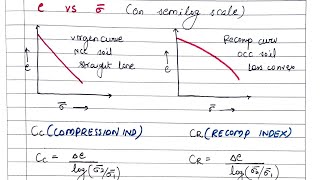 e vs σ̄ (on semilog scale)
virgin curve
NCC soil
straight line
e
σ̄ →
Recomp curv
OCC soil
Less convex
e
σ̄ →
Cc (COMPRESSION IND)
CR (RECOMP INDEX)
Cc = Δe / log(σ̄2/σ̄1)
CR = Δe / log(σ̄2/σ̄1)